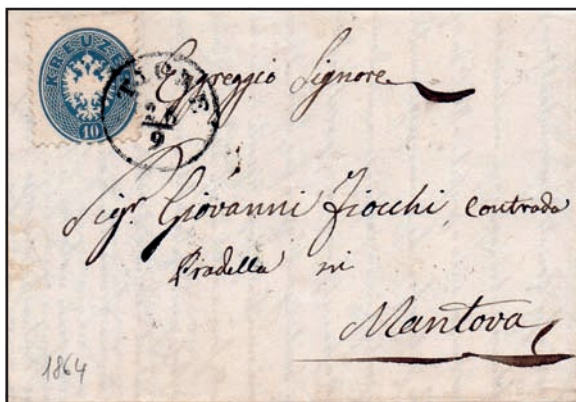 KREUZER
10
9
Egreggio Signore
Sigr. Giovanni Fiocchi Contrada
Pradella in
Mantova
1864